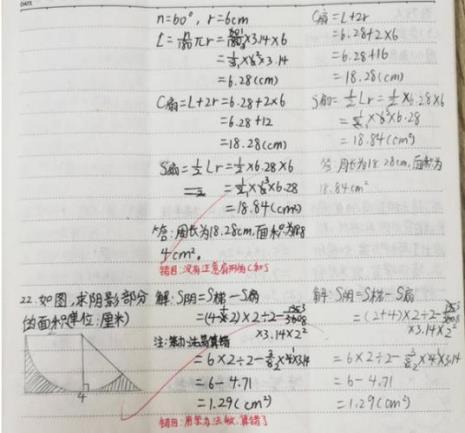 DATE
n=60°, r=6cm
l=n/180 πr=60/180×3.14×6
=1/3×6×3.14
=6.28(cm)
C扇=L+2r=6.28+2×6
=6.28+12
=18.28(cm)
S扇=1/2Lr=1/2×6.28×6
=1/2×6×6.28
=18.84(cm²)
答:周长为18.28cm,面积为18.8
4cm²。
错因:没有注意看形为C和S
C扇=L+2r
=6.28+2×6
=6.28+16
=18.28(cm)
S扇=1/2Lr=1/2×6.28×6
=1/2×6×6.28
=18.84(cm²)
答:周长为18.28cm,面积为
18.84cm²
22.如图,求阴影部分
的面积(单位:厘米)
4
解:S阴=S梯-S扇
=(4+2)×2÷2-
×3.14×2²
=6×2÷2-3/8×4×3.14
=6-4.71
=1.29(cm²)
解:S阴=S梯-S扇
=(2+4)×2÷2-
×3.14×2²
=6×2÷2-3/8×4×3.14
=6-4.71
=1.29(cm²)